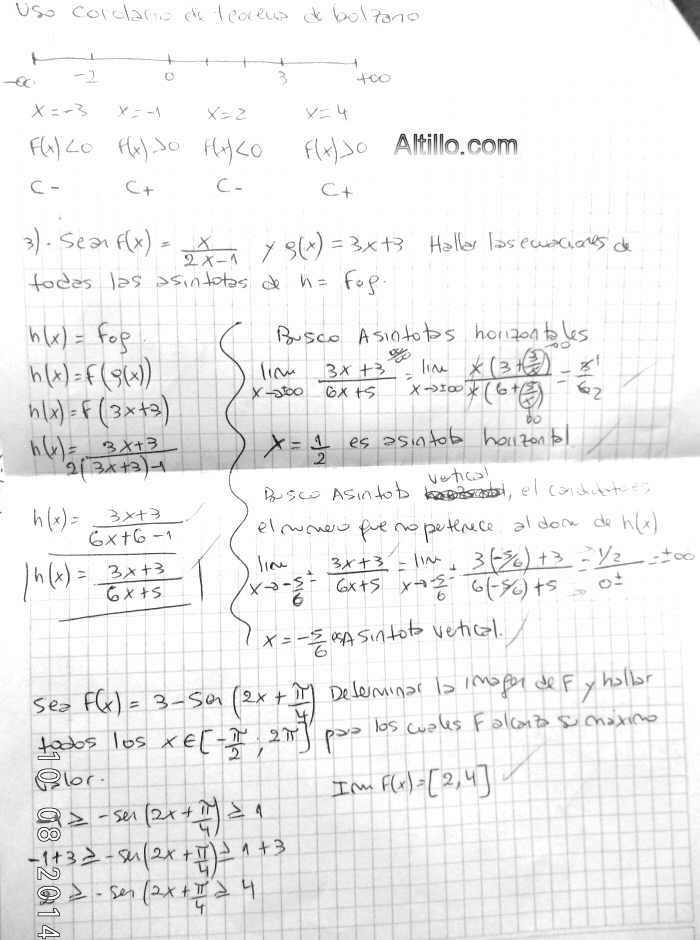 Uso corolario de teorema de bolzano
-∞ -1 0 3 +∞
x=-3 x=-1 x=2 x=4
f(x)<0 f(x)>0 f(x)<0 f(x)>0 Altillo.com
C- C+ C- C+
3). Sean f(x) = x/(2x-1) y g(x) = 3x+3 Hallar las ecuaciones de
todas las asintotas de h = Fog.
h(x) = Fog.
h(x) = f(g(x))
h(x) = f(3x+3)
h(x) = (3x+3)/(2(3x+3)-1)
h(x) = (3x+3)/(6x+6-1)
h(x) = (3x+3)/(6x+5)
Busco Asintotas horizontales
lim x→±∞ (3x+3)/(6x+5) = lim x→±∞ x(3+3/x)/x(6+5/x) = 3/6 1/2
x = 1/2 es asintota horizontal
Busco Asintota vertical, el candidato es
el numero que no petenece al dom de h(x)
lim x→-5/6± (3x+3)/(6x+5) = lim x→-5/6± (3(-5/6)+3)/(6(-5/6)+5) = (1/2)/0± = ±∞
x = -5/6 es Asintota vertical.
Sea F(x) = 3-Sen(2x+π/4) Determinar la imagen de F y hallar
todos los x∈[-π/2 ; 2π] para los cuales F alcanza su máximo
valor.
Im f(x) = [2,4]
≥ -sen(2x+π/4) ≥ 1
-1+3 ≥ -sen(2x+π/4) ≥ 1+3
≥ -sen(2x+π/4 ≥ 4
10 08 2014